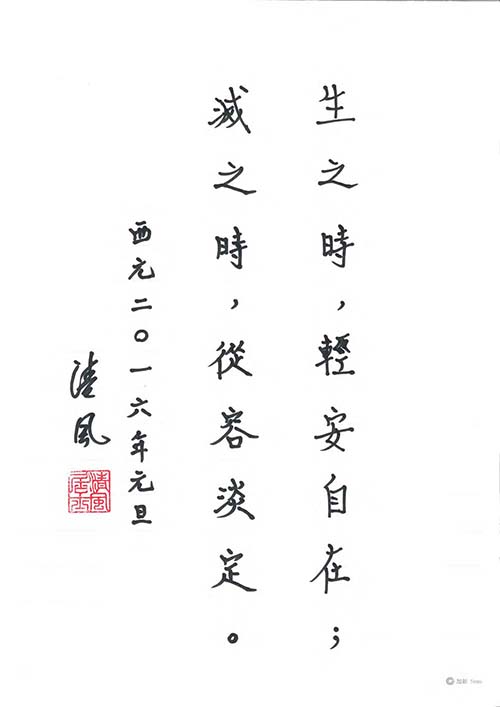 生之時，輕安自在；
滅之時，從容淡定。
西元二〇一六年元旦
清風
清風居士